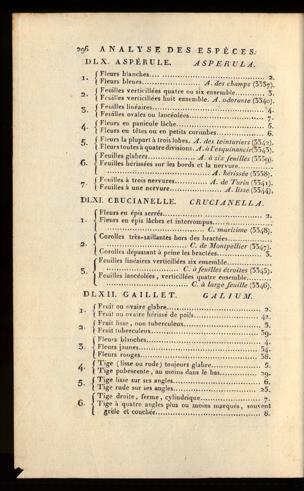 296 ANALYSE DES ESPÈCES.
DLX. ASPÉRULE. ASPERULA.
1. { Fleurs blanches.... 2.
{ Fleurs bleues.... A. des champs (3337).
2. { Feuilles verticillées quatre ou six ensemble.... 3.
{ Feuilles verticillées huit ensemble. A. odorante (3340).
3. { Feuilles linéaires.... 4.
{ Feuilles ovales ou lancéolées.... 7.
4. { Fleurs en panicule lâche.... 5.
{ Fleurs en têtes ou en petits corimbes.... 6.
5. { Fleurs la plupart à trois lobes. A. des teinturiers (3342).
{ Fleurs toutes à quatre divisions. A. à l'esquinancie (3343).
6. { Feuilles glabres.... A. à six feuilles (3339).
{ Feuilles hérissées sur les bords et la nervure....
A. hérissée (3338).
7. { Feuilles à trois nervures.... A. de Turin (3341).
{ Feuilles à une nervure.... A. lisse (3344).
DLXI. CRUCIANELLE. CRUCIANELLA.
1. { Fleurs en épis serrés.... 2.
{ Fleurs en épis lâches et interrompus....
C. maritime (3348).
2. { Corolles très-saillantes hors des bractées....
C. de Montpellier (3347).
{ Corolles dépassant à peine les bractées.... 3.
3. { Feuilles linéaires verticillées six ensemble....
C. à feuilles étroites (3345).
{ Feuilles lancéolées, verticillées quatre ensemble....
C. à large feuille (3346).
DLXII. GAILLET. GALIUM.
1. { Fruit ou ovaire glabre.... 2.
{ Fruit ou ovaire hérissé de poils.... 42.
2. { Fruit lisse, non tuberculeux.... 3.
{ Fruit tuberculeux.... 39.
3. { Fleurs blanches.... 4.
{ Fleurs jaunes.... 34.
{ Fleurs rouges.... 38.
4. { Tige (lisse ou rude) toujours glabre.... 5.
{ Tige pubescente, au moins dans le bas.... 29.
5. { Tige lisse sur ses angles.... 6.
{ Tige rude sur ses angles.... 23.
6. { Tige droite, ferme, cylindrique.... 7.
{ Tige à quatre angles plus ou moins marqués, souvent
grêle et couchée.... 8.